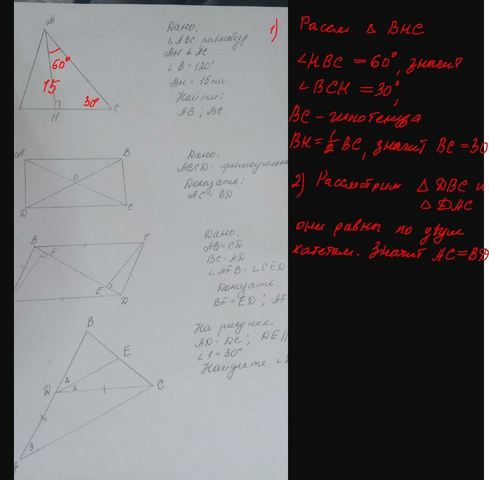 B
60°
15
30°
H
C
Дано:
△ABC равнобедр
BH ⊥ AC
∠B = 120°
BH = 15см
Найти:
AB; BC.
A
B
O
D
C
Дано:
ABCD - прямоугольн
Доказать:
AC = BD
B
C
F
E
D
Дано:
AB = CD
BC = AD
∠AFB = ∠CED
Доказать.
BF = ED; AF
B
E
2
D
1
C
3
На рисунке
AD = DC; DE ||
∠1 = 30°
Найдите ∠
1) Рассм. △ BHC
∠HBC = 60°, значит
∠BCH = 30°,
BC - гипотенуза
BH = ½ BC, значит BC = 30
2) Рассмотрим △ DBC и
△ DAC
они равны по двум
катетам. Значит AC = BD